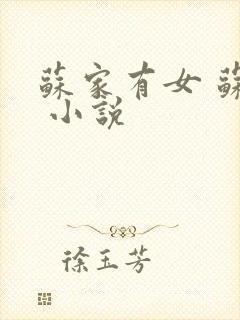 蘇家有女 蘇
小說
徐玉芳